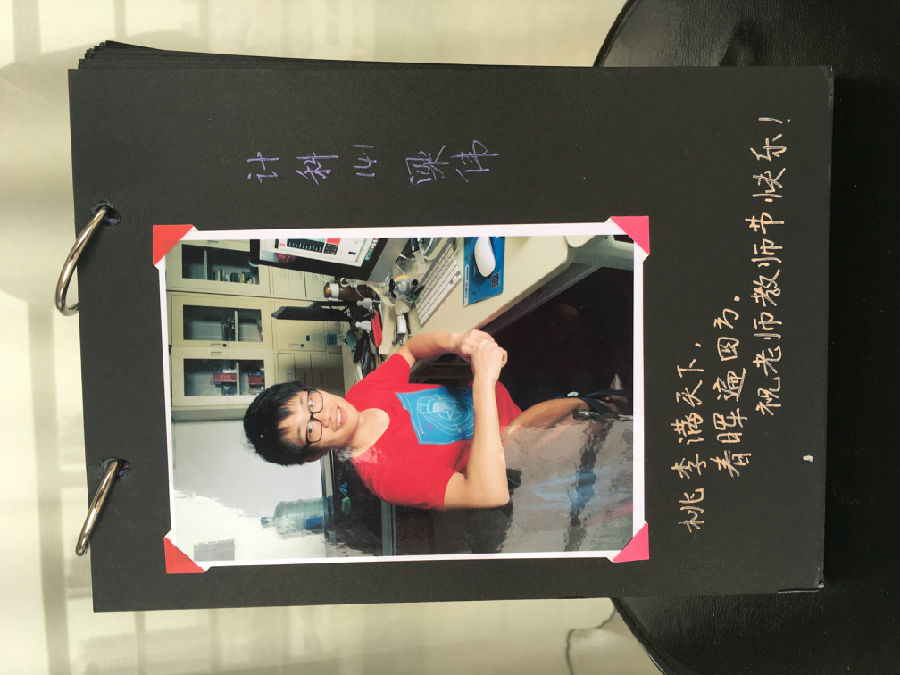 计科141 梁伟
桃李满天下，
春晖遍四方。
祝老师教师节快乐！